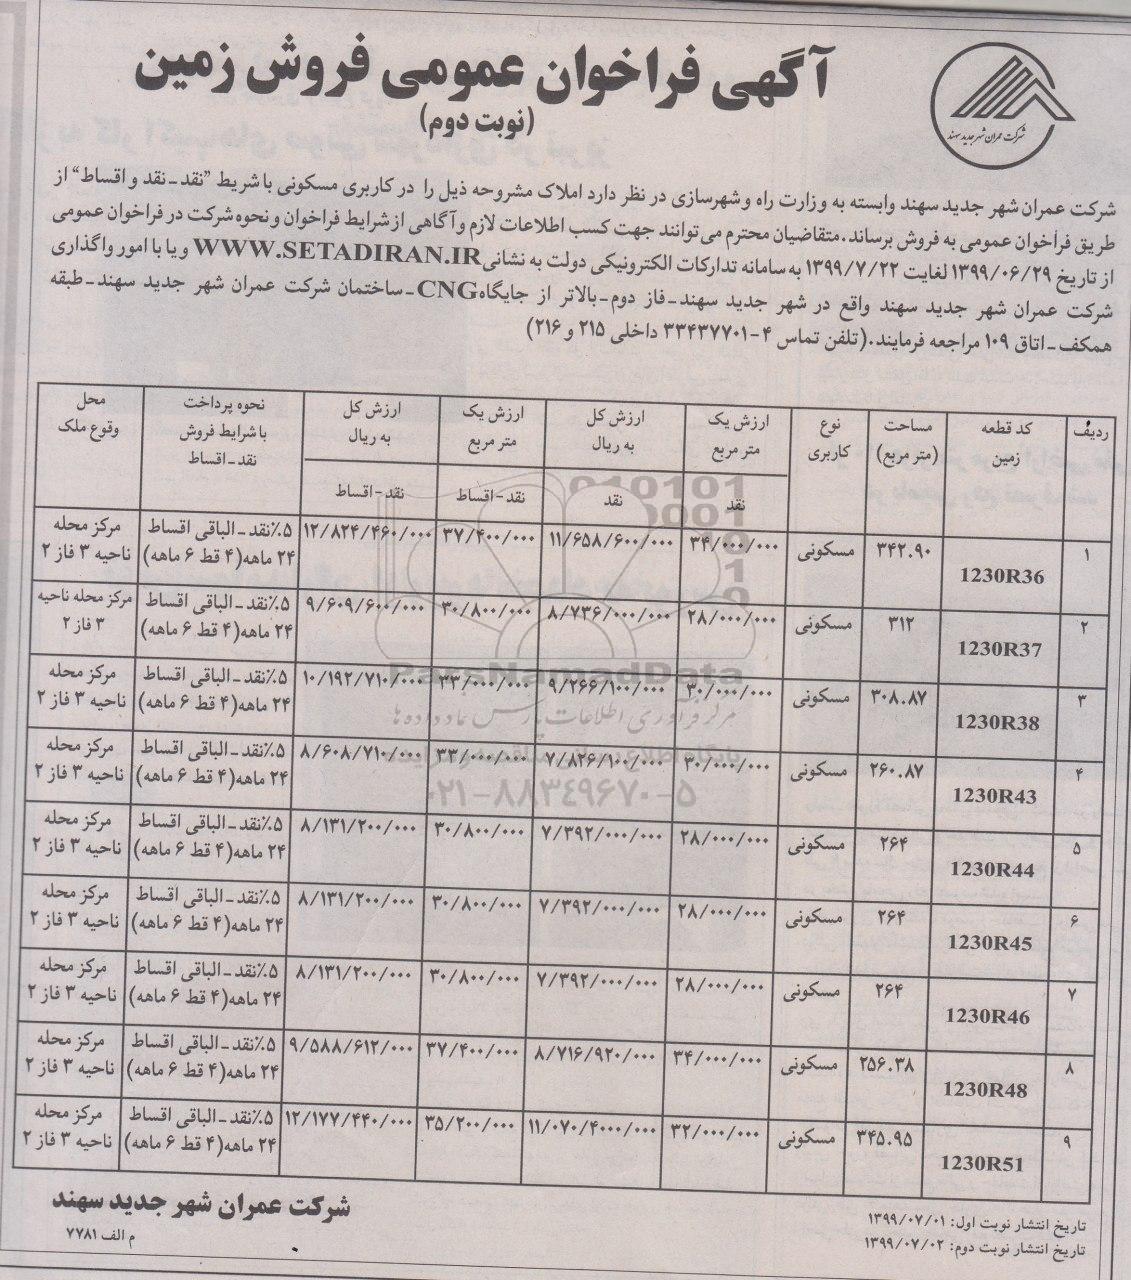 آگهی فراخوان عمومی فروش زمین
(نوبت دوم)
شرکت عمران شهر جدید سهند
شرکت عمران شهر جدید سهند وابسته به وزارت راه و شهرسازی در نظر دارد املاک مشروحه ذیل را در کاربری مسکونی با شریط "نقد-نقد و اقساط" از
طریق فراخوان عمومی به فروش برساند. متقاضیان محترم می‌توانند جهت کسب اطلاعات لازم و آگاهی از شرایط فراخوان و نحوه شرکت در فراخوان عمومی
از تاریخ ۱۳۹۹/۰۶/۲۹ لغایت ۱۳۹۹/۷/۲۲ به سامانه تدارکات الکترونیکی دولت به نشانی WWW.SETADIRAN.IR و یا با امور واگذاری
شرکت عمران شهر جدید سهند واقع در شهر جدید سهند-فاز دوم-بالاتر از جایگاه CNG-ساختمان شرکت عمران شهر جدید سهند-طبقه
همکف-اتاق ۱۰۹ مراجعه فرمایند.(تلفن تماس ۴-۳۳۴۳۷۷۰۱ داخلی ۲۱۵ و ۲۱۶)
ردیف | کد قطعه زمین | مساحت (متر مربع) | نوع کاربری | ارزش یک متر مربع نقد | ارزش کل به ریال نقد | ارزش یک متر مربع نقد-اقساط | ارزش کل به ریال نقد-اقساط | نحوه پرداخت با شرایط فروش نقد-اقساط | محل وقوع ملک
۱ | 1230R36 | ۳۴۲.۹۰ | مسکونی | ۳۴/۰۰۰/۰۰۰ | ۱۱/۶۵۸/۶۰۰/۰۰۰ | ۳۷/۴۰۰/۰۰۰ | ۱۲/۸۲۴/۴۶۰/۰۰۰ | ۵٪نقد-الباقی اقساط ۲۴ ماهه(۴ قط ۶ ماهه) | مرکز محله ناحیه ۳ فاز ۲
۲ | 1230R37 | ۳۱۲ | مسکونی | ۲۸/۰۰۰/۰۰۰ | ۸/۷۳۶/۰۰۰/۰۰۰ | ۳۰/۸۰۰/۰۰۰ | ۹/۶۰۹/۶۰۰/۰۰۰ | ۵٪نقد-الباقی اقساط ۲۴ ماهه(۴ قط ۶ ماهه) | مرکز محله ناحیه ۳ فاز ۲
۳ | 1230R38 | ۳۰۸.۸۷ | مسکونی | ۳۰/۰۰۰/۰۰۰ | ۹/۲۶۶/۱۰۰/۰۰۰ | ۳۳/۰۰۰/۰۰۰ | ۱۰/۱۹۲/۷۱۰/۰۰۰ | ۵٪نقد-الباقی اقساط ۲۴ ماهه(۴ قط ۶ ماهه) | مرکز محله ناحیه ۳ فاز ۲
۴ | 1230R43 | ۲۶۰.۸۷ | مسکونی | ۳۰/۰۰۰/۰۰۰ | ۷/۸۲۶/۱۰۰/۰۰۰ | ۳۳/۰۰۰/۰۰۰ | ۸/۶۰۸/۷۱۰/۰۰۰ | ۵٪نقد-الباقی اقساط ۲۴ ماهه(۴ قط ۶ ماهه) | مرکز محله ناحیه ۳ فاز ۲
۵ | 1230R44 | ۲۶۴ | مسکونی | ۲۸/۰۰۰/۰۰۰ | ۷/۳۹۲/۰۰۰/۰۰۰ | ۳۰/۸۰۰/۰۰۰ | ۸/۱۳۱/۲۰۰/۰۰۰ | ۵٪نقد-الباقی اقساط ۲۴ ماهه(۴ قط ۶ ماهه) | مرکز محله ناحیه ۳ فاز ۲
۶ | 1230R45 | ۲۶۴ | مسکونی | ۲۸/۰۰۰/۰۰۰ | ۷/۳۹۲/۰۰۰/۰۰۰ | ۳۰/۸۰۰/۰۰۰ | ۸/۱۳۱/۲۰۰/۰۰۰ | ۵٪نقد-الباقی اقساط ۲۴ ماهه(۴ قط ۶ ماهه) | مرکز محله ناحیه ۳ فاز ۲
۷ | 1230R46 | ۲۶۴ | مسکونی | ۲۸/۰۰۰/۰۰۰ | ۷/۳۹۲/۰۰۰/۰۰۰ | ۳۰/۸۰۰/۰۰۰ | ۸/۱۳۱/۲۰۰/۰۰۰ | ۵٪نقد-الباقی اقساط ۲۴ ماهه(۴ قط ۶ ماهه) | مرکز محله ناحیه ۳ فاز ۲
۸ | 1230R48 | ۲۵۶.۳۸ | مسکونی | ۳۴/۰۰۰/۰۰۰ | ۸/۷۱۶/۹۲۰/۰۰۰ | ۳۷/۴۰۰/۰۰۰ | ۹/۵۸۸/۶۱۲/۰۰۰ | ۵٪نقد-الباقی اقساط ۲۴ ماهه(۴ قط ۶ ماهه) | مرکز محله ناحیه ۳ فاز ۲
۹ | 1230R51 | ۳۴۵.۹۵ | مسکونی | ۳۲/۰۰۰/۰۰۰ | ۱۱/۰۷۰/۴۰۰۰/۰۰۰ | ۳۵/۲۰۰/۰۰۰ | ۱۲/۱۷۷/۴۴۰/۰۰۰ | ۵٪نقد-الباقی اقساط ۲۴ ماهه(۴ قط ۶ ماهه) | مرکز محله ناحیه ۳ فاز ۲
ParsNamadData
مرکز فرآوری اطلاعات پارس نماد داده ها
۰۲۱-۸۸۳۴۹۶۷۰-۵
تاریخ انتشار نوبت اول: ۱۳۹۹/۰۷/۰۱
تاریخ انتشار نوبت دوم: ۱۳۹۹/۰۷/۰۲
شرکت عمران شهر جدید سهند
م الف ۷۷۸۱